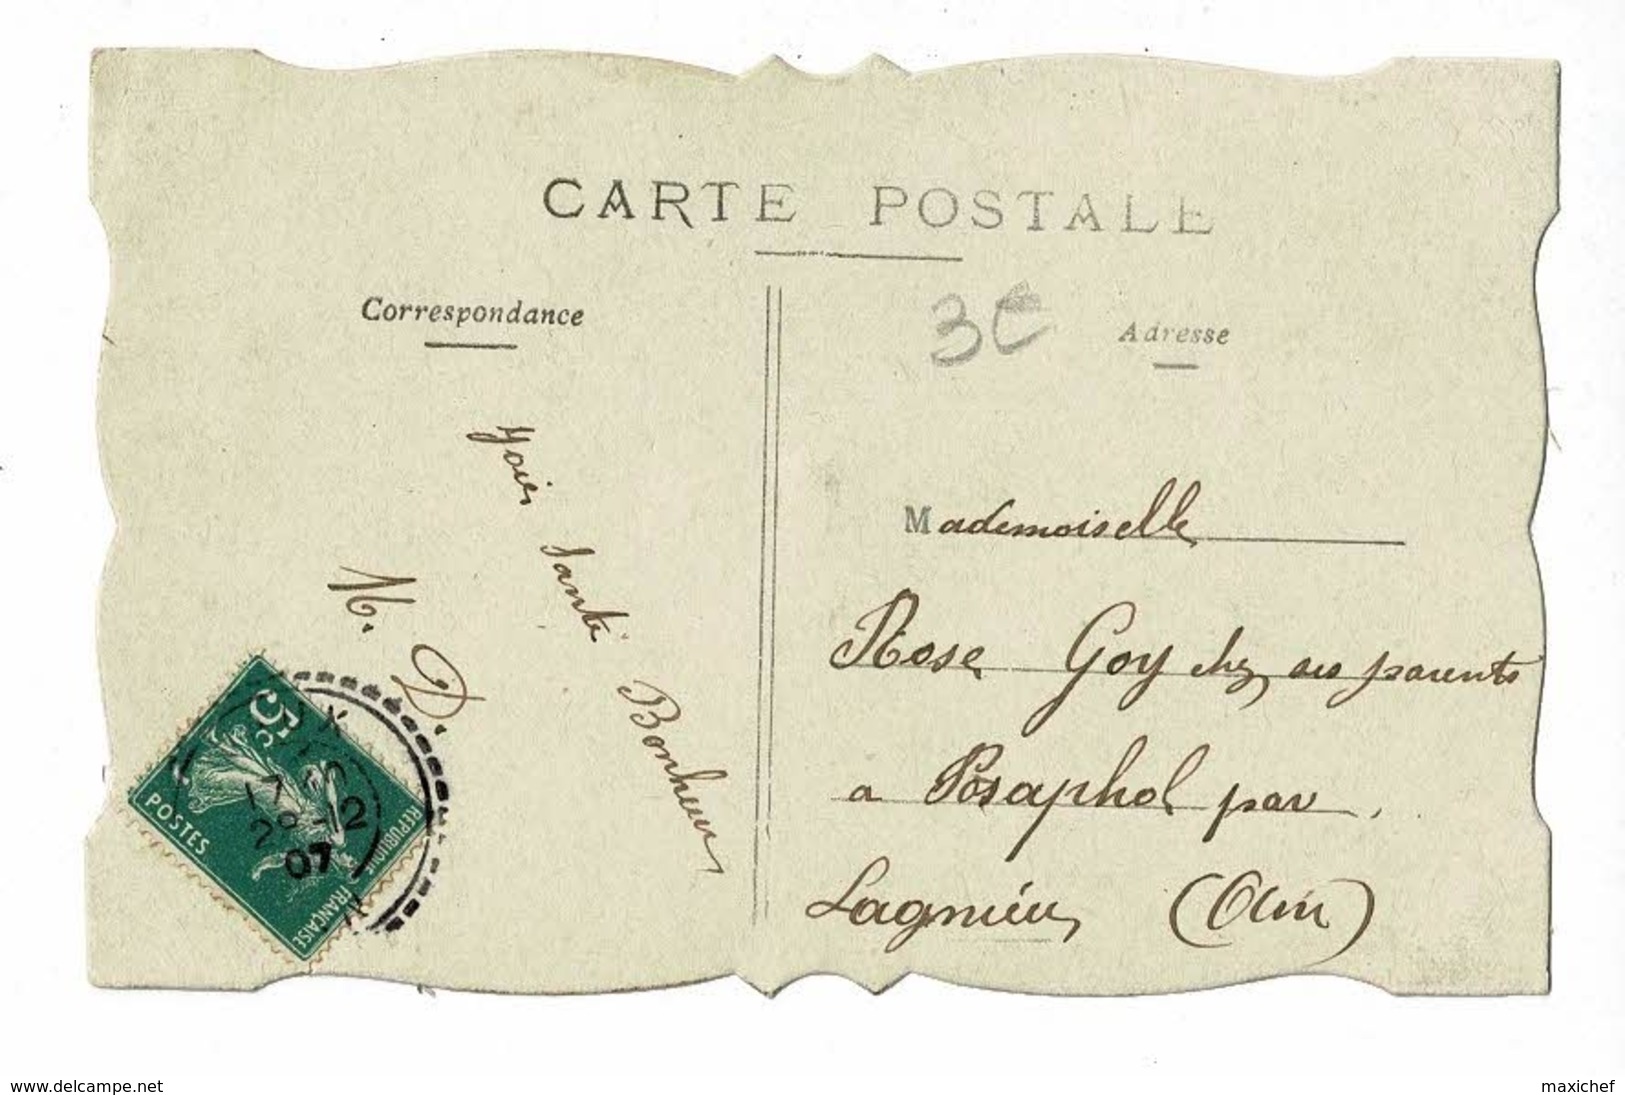 CARTE POSTALE
Correspondance
3€
Adresse
Joie,
Santé
Bonheur
M. D.
Mademoiselle
Rose Goy chez ses parents
a Posaphol par
Lagnieu, (Ain)
5c
POSTES
REPUBLIQUE FRANÇAISE
-12
07
www.delcampe.net
maxichef